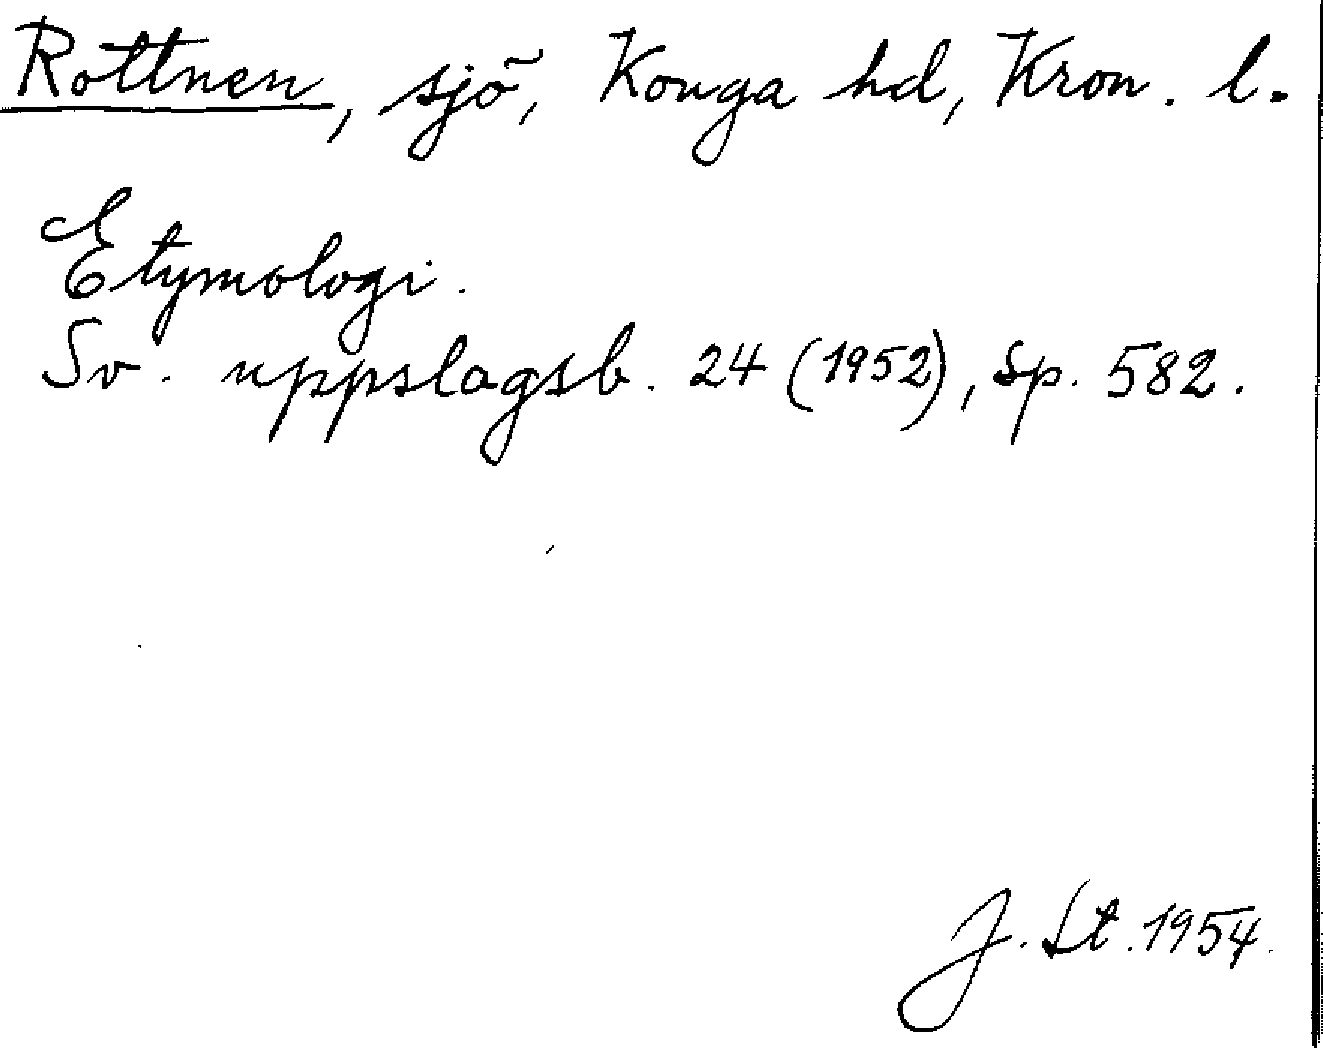 Rottnen, sjö, Konga hd, Kron. l.
Etymologi.
Sv. uppslagsb. 24 (1952), Sp. 582.
J. St. 1954.